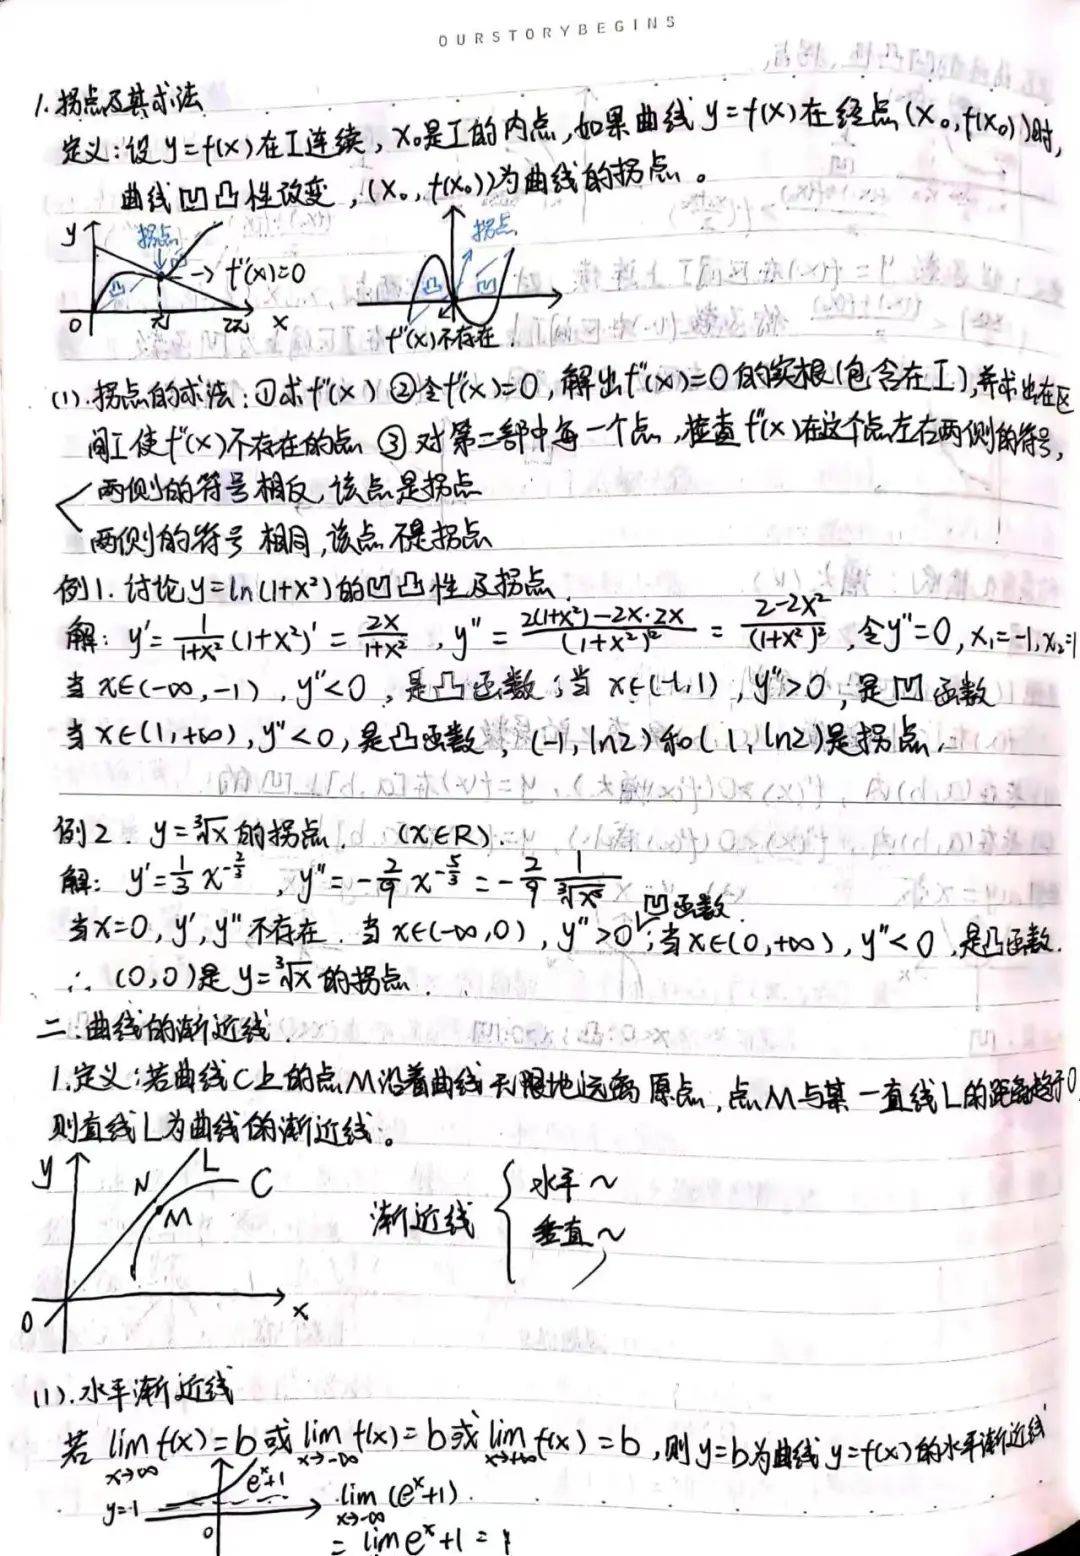 OURSTORYBEGINS
1.拐点及其求法
定义:设y=f(x)在I连续,x₀是I的内点,如果曲线y=f(x)在经点(x₀,f(x₀))时,
曲线凹凸性改变,(x₀,f(x₀))为曲线的拐点。
y 拐点 凸 凹 → f''(x)=0
0 π 2π x
拐点 凸 凹
f''(x)不存在.
(1).拐点的求法:①求f''(x) ②令f''(x)=0,解出f''(x)=0的实根(包含在I),并求出在区
间I使f''(x)不存在的点 ③对第二部中每一个点,检查f''(x)在这个点左右两侧的符号,
两侧的符号相反,该点是拐点
两侧的符号相同,该点不是拐点
例1.讨论y=ln(1+x²)的凹凸性及拐点.
解: y'=1/(1+x²) (1+x²)' = 2x/(1+x²), y''= (2(1+x²)-2x·2x)/(1+x²)² = (2-2x²)/(1+x²)², 令y''=0, x₁=-1, x₂=1
当x∈(-∞,-1),y''<0,是凸函数;当x∈(-1,1),y''>0,是凹函数
当x∈(1,+∞),y''<0,是凸函数;(-1,ln2)和(1,ln2)是拐点.
例2. y=∛x的拐点. (x∈R).
解: y'=1/3 x^(-2/3), y''=-2/9 x^(-5/3) = -2/9 1/∛x⁵
凹函数.
当x=0,y',y''不存在.当x∈(-∞,0),y''>0;当x∈(0,+∞),y''<0,是凸函数.
∴(0,0)是y=∛x的拐点.
二.曲线的渐近线.
1.定义:若曲线C上的点M沿着曲线无限地远离原点,点M与某一直线L的距离趋于0,
则直线L为曲线的渐近线。
y N L C
M
0 x
渐近线 { 水平~
垂直~
(1).水平渐近线
若 lim(x→∞) f(x)=b或 lim(x→-∞) f(x)=b或 lim(x→+∞) f(x)=b,则y=b为曲线y=f(x)的水平渐近线
y=1 eˣ+1
0
lim(x→-∞) (eˣ+1)
= lim eˣ+1 = 1